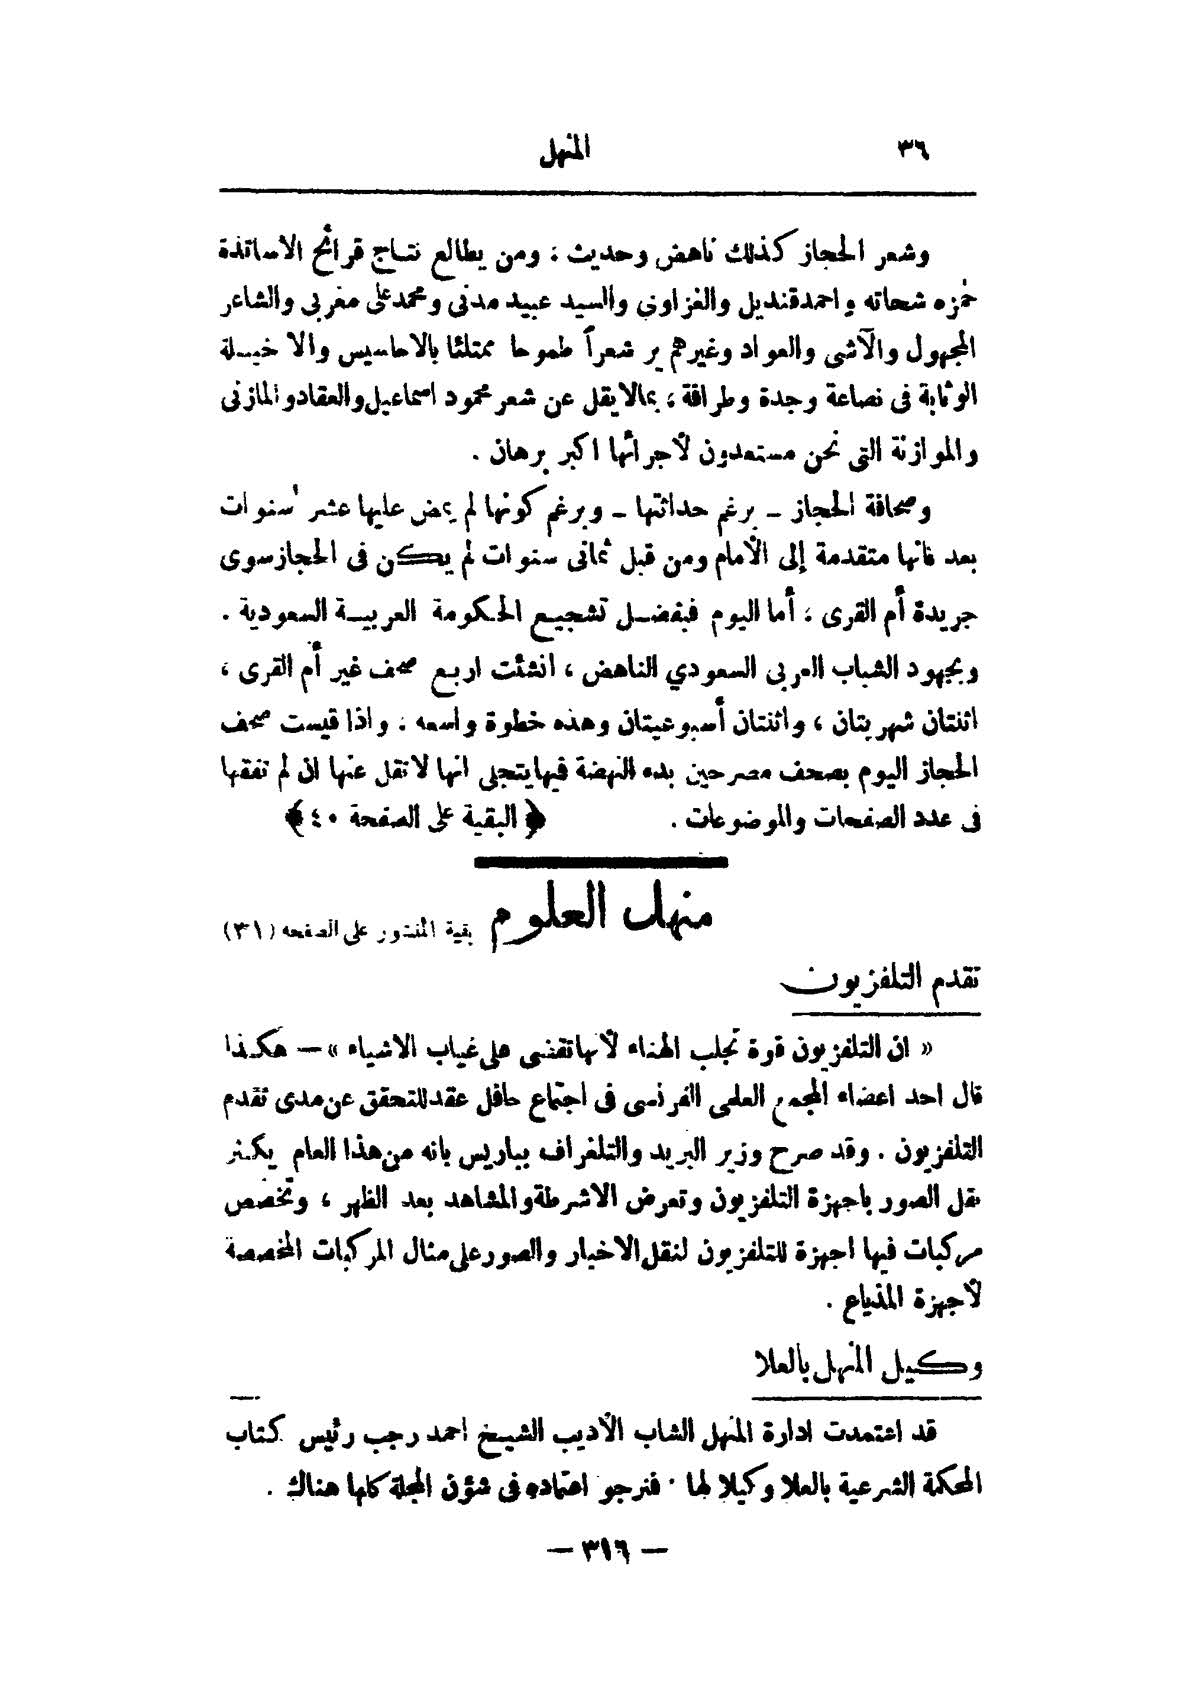 ٣٦
المنهل
وشعر الحجاز كذلك ناهض وحديث ؛ ومن يطالع نتاج قرائح الاساتذة
حمزه شحاته واحمد قنديل والغزاوي والسيد عبيد مدنى ومحمد على مغربى والشاعر
المجهول والآشى والعواد وغيرهم ير شعراً طموحا ممتلئا بالاحاسيس والاخيلة
الوثابة فى نصاعة وجدة وطرافة ؛ بمالا يقل عن شعر محمود اسماعيل والعقاد والمازنى
والموازنة التى نحن مستعدون لأجرائها اكبر برهان .
وصحافة الحجاز ــ برغم حداثتها ــ وبرغم كونها لم يمض عليها عشر سنوات
بعد فانها متقدمة إلى الأمام ومن قبل ثمانى سنوات لم يكن فى الحجاز سوى
جريدة أم القرى ؛ أما اليوم فبفضل تشجيع الحكومة العربية السعودية .
وبجهود الشباب العربى السعودي الناهض ، انشئت اربع صحف غير أم القرى ،
اثنتان شهريتان ، واثنتان أسبوعيتان وهذه خطوة واسعه . واذا قيست صحف
الحجاز اليوم بصحف مصر حين بدء النهضة فيها يتجلى انها لا تقل عنها ان لم تفقها
فى عدد الصفحات والموضوعات . ﴿ البقية على الصفحة ٤٠ ﴾
منهل العلوم بقية المنشور على الصفحه (٣١)
تقدم التلفزيون
« ان التلفزيون قوة تجلب الهناء لأنها تقضى على غياب الاشياء » — هكذا
قال احد اعضاء المجمع العلمى الفرنسى فى اجتماع حافل عقد للتحقق عن مدى تقدم
التلفزيون . وقد صرح وزير البريد والتلغراف بباريس بانه من هذا العام يكثر
نقل الصور باجهزة التلفزيون وتعرض الاشرطة والمشاهد بعد الظهر ، وتخصص
مركبات فيها اجهزة للتلفزيون لنقل الاخبار والصور على مثال المركبات المخصصة
لأجهزة المذياع .
وكيل المنهل بالعلا
قد اعتمدت ادارة المنهل الشاب الأديب الشيخ احمد رجب رئيس كتاب
المحكمة الشرعية بالعلا وكيلا لها . فنرجو اعتماده فى شؤن المجلة كلها هناك .
— ٣١٦ —